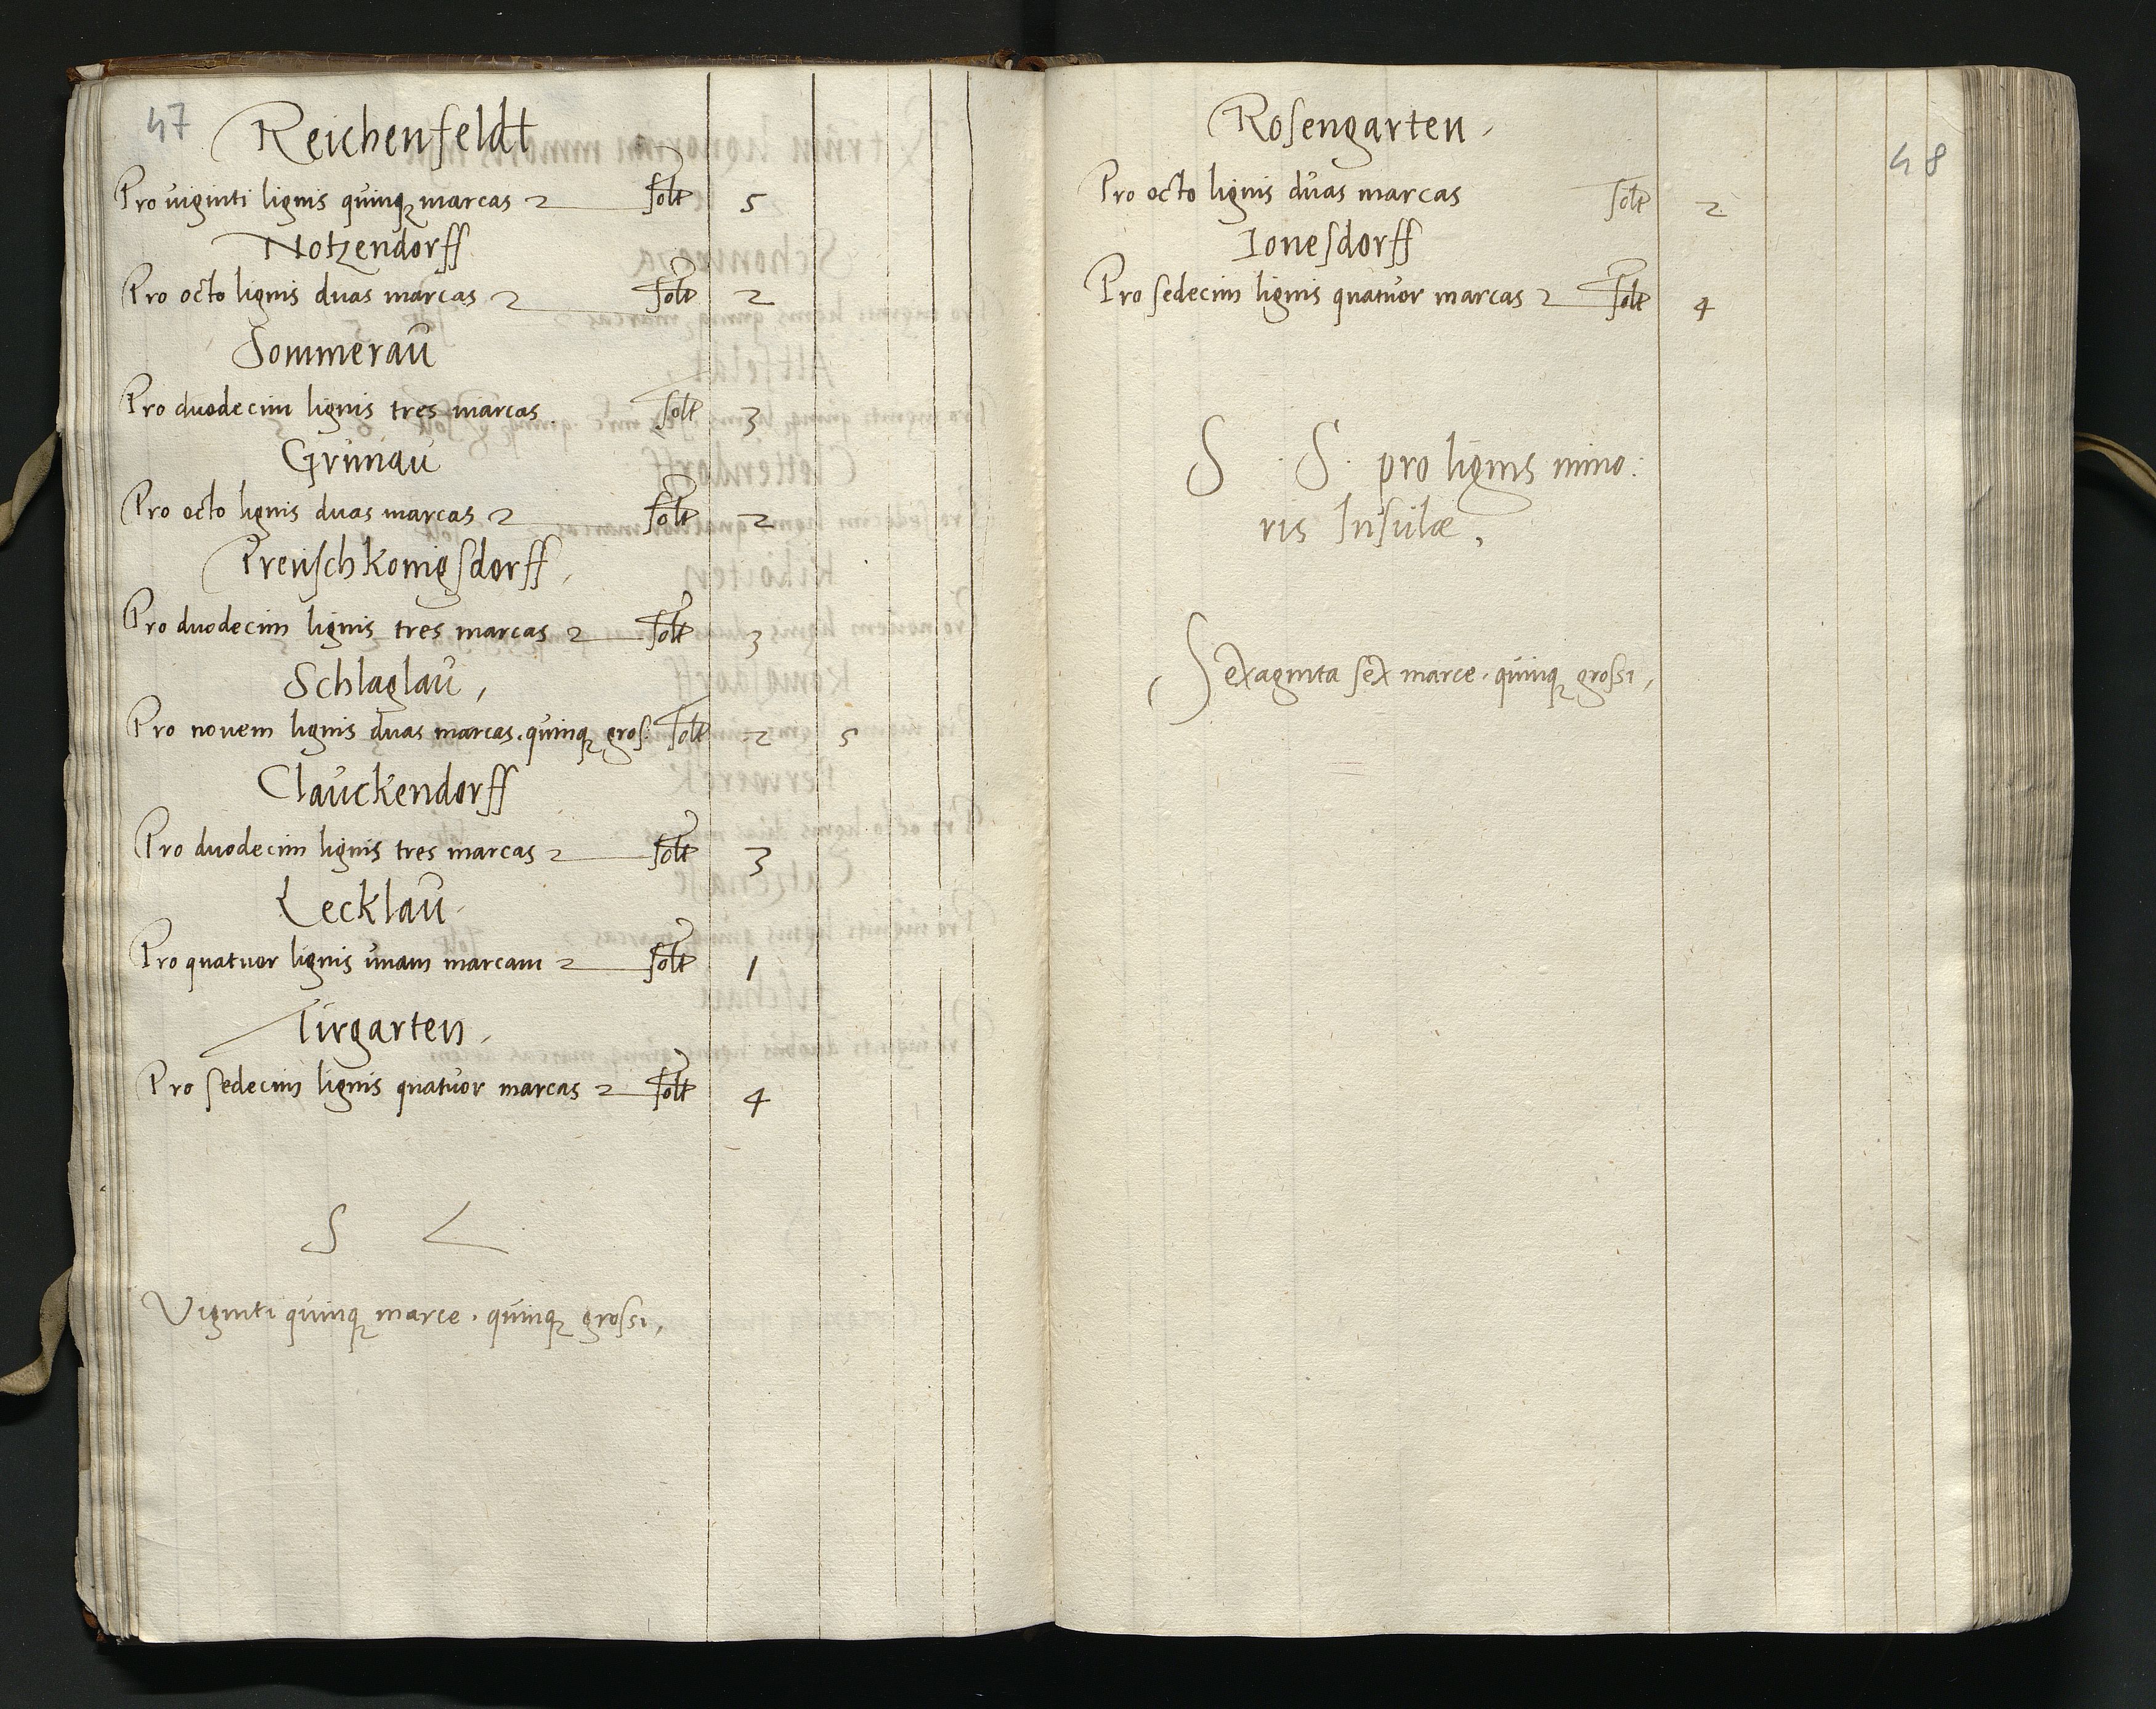 47
Reichenfeldt
Pro viginti lignis quinq marcas solt 5
Notzendorff
Pro octo lignis duas marcas solt 2
Sommerau
Pro duodecim lignis tres marcas solt 3
Grunau
Pro octo lignis duas marcas solt 2
Preuschkonigsdorff
Pro duodecim lignis tres marcas solt 3
Schlaglau,
Pro novem lignis duas marcas. quinq gros: solt 2 5
Clauckendorff
Pro duodecim lignis tres marcas solt 3
Lecklau
Pro quatuor lignis unam marcam solt 1
Tirgarten,
Pro sedecim lignis quatuor marcas solt 4
S L
Viginti quinq marce. quinq grossi,
48
Rosengarten
Pro octo lignis duas marcas solt 2
Ionesdorff
Pro sedecim lignis quatuor marcas solt 4
S. S. pro lignis mino:
ris Insulæ,
Sexaginta sex marce. quinq grossi,